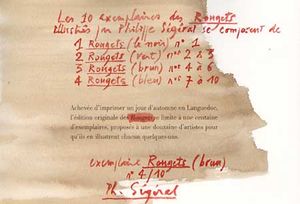 Les 10 exemplaires des Rougets
illustrés par Philippe Ségéral se composent de
1 Rougets (le noir) n° 1
2 Rougets (vert) n°s 2 à 3
3 Rougets (brun) n°s 4 à 6
4 Rougets (bleu) n°s 7 à 10
Achevée d'imprimer un jour d'automne en Languedoc,
l'édition originale des Rougets se limite à une centaine
d'exemplaires, proposés à une douzaine d'artistes pour
qu'ils en illustrent chacun quelques-uns.
exemplaire Rougets (brun)
n° 4/10
Ph. Ségéral